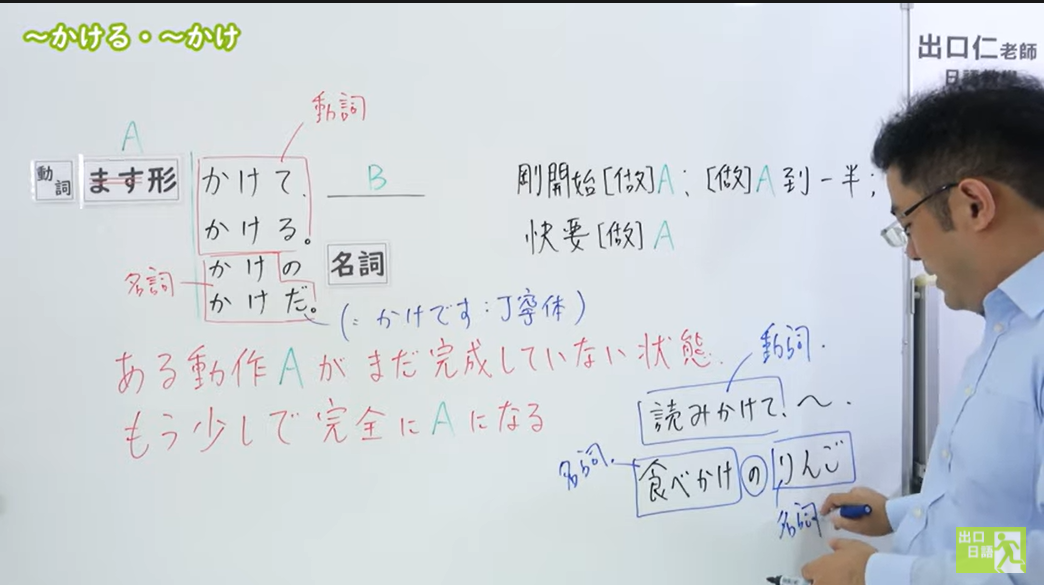 ～かける・～かけ
出口仁老師
日語教學
動詞
A
動詞
ます形
かけて、
B
かける。
名詞
かけの
名詞
かけだ。
(= かけです:丁寧体)
剛開始[做]A; [做]A到一半;
快要[做]A
ある動作Aがまだ完成していない状態.
もう少しで完全にAになる
動詞.
読みかけて、～.
名詞.
食べかけのりんご
名詞
出口
日語